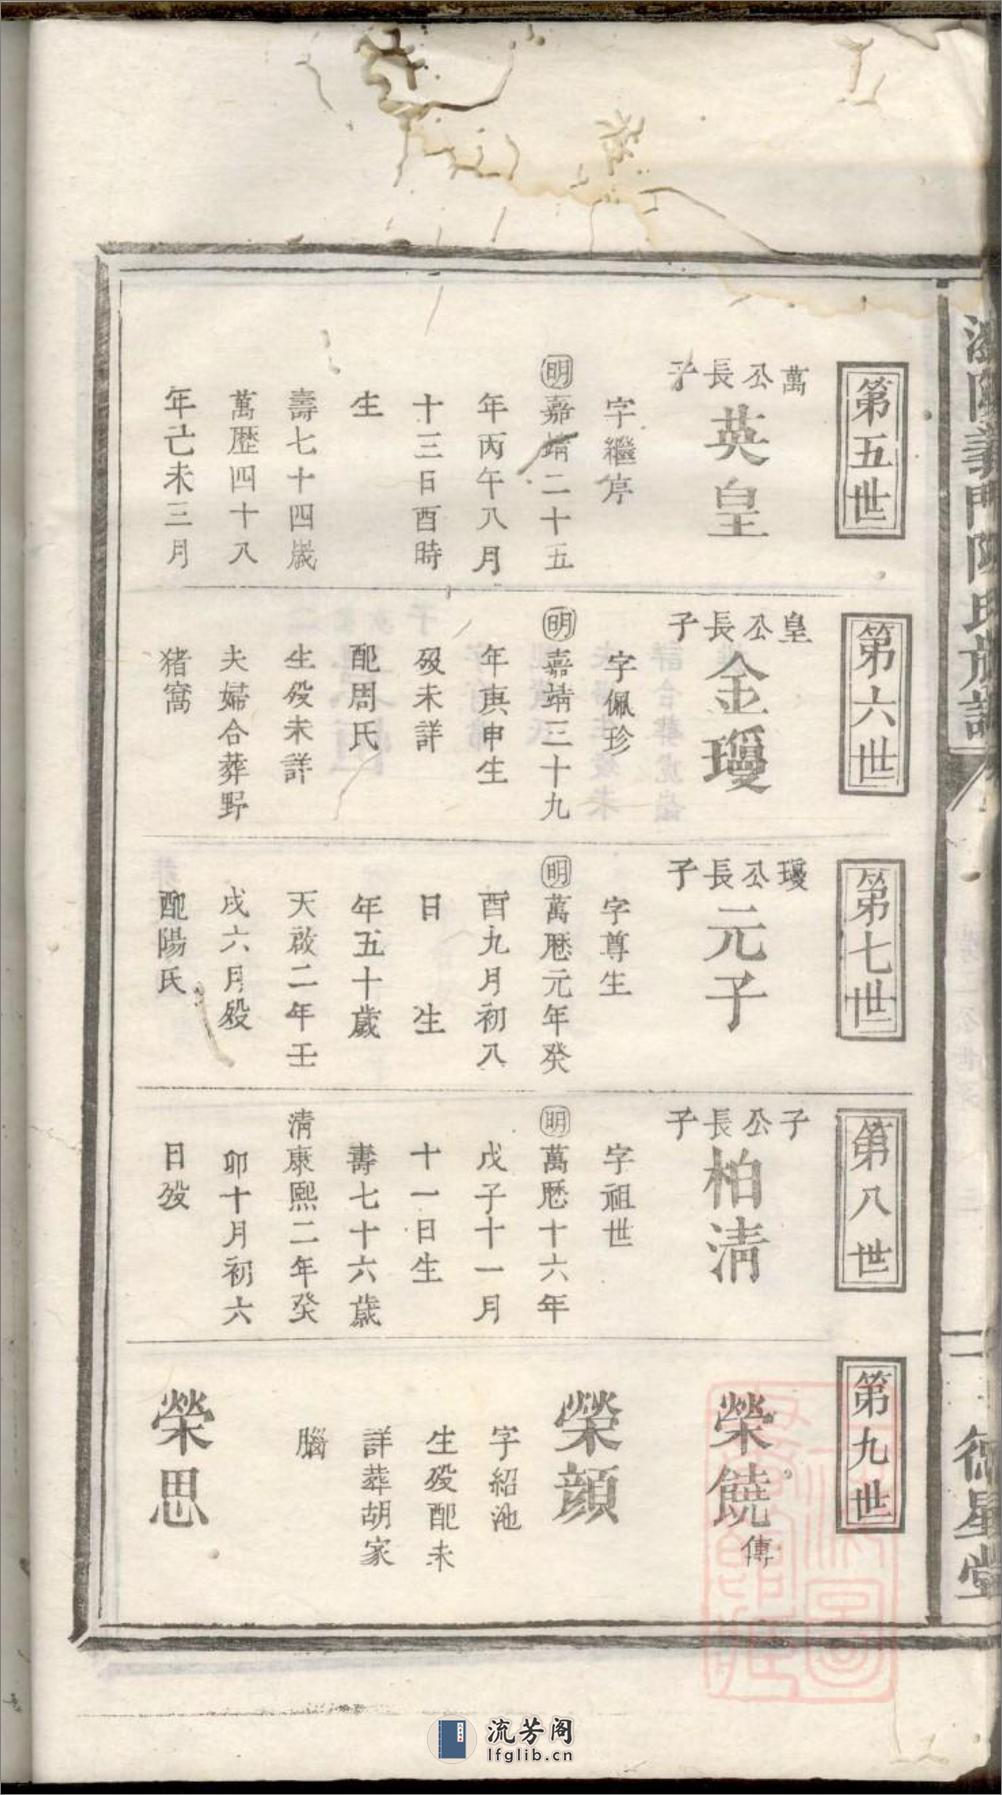 陽義門陳氏族譜
一
德星堂
第五世
萬公長子
英皇
字繼序
明嘉靖二十五
年丙午八月
十三日酉時
生
壽七十四歲
萬歷四十八
年亡未三月
第六世
皇公長子
金瓊
字佩珍
明嘉靖三十九
年庚申生
歿未詳
配周氏
生歿未詳
夫婦合葬野
猪窩
第七世
瓊公長子
元子
字尊生
明萬歷元年癸
酉九月初八
日生
年五十歲
天啟二年壬
戌六月歿
配陽氏
第八世
子公長子
柏清
字祖世
明萬歷十六年
戊子十一月
十一日生
壽七十六歲
清康熙二年癸
卯十月初六
日歿
第九世
榮饒傳
榮顔
字紹池
生歿配未
詳葬胡家
腦
榮思
流芳阁
lfglib.cn